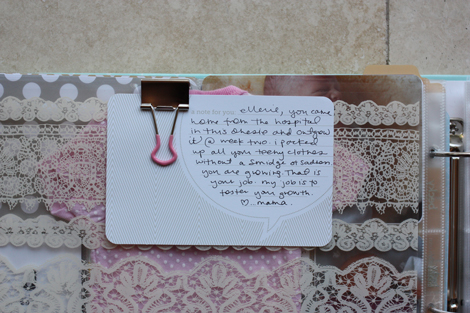 a note for you: ellerie, you came
home from the hospital
in this onesie and outgrew
it @ week two. i packed
up all your teeny clothes
without a smidge of sadness
you are growing. That is
your job. my job is to
foster your growth.
♡...mama.